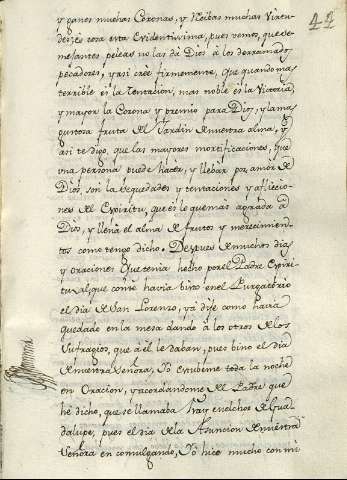 44
y ganes muchas Coronas, y Palmas muchas Virtu-
des; es cosa esta evidentissima, pues vemos, que se-
mejantes peleas no las dà Dios à los derramados
pecadores, y asi creè firmemente, que quando mas
terrible es la tentacion, mas noble es la Victoria,
y mayor la Corona y premio para Dios, y la mas
gustosa fruta del Jardin de nuestra alma, y
asi te digo, que las mayores mortificaciones, que
una persona puede hacer, y llebar por amor de
Dios, son la sequedades y tentaciones y afliccio-
nes del Espiritu, que es lo que mas agrada à
Dios, y llena el alma de frutos y merecimien-
tos como tengo dicho. Despues de muchos dias
y oraciones que tenia hecho por el Padre Espiri-
tual, que conte havia visto en el Purgatorio
el dia de San Lorenzo, ya dije como havia
quedado en la mesa dando à los otros de los
sufragios, que à èl le daban, pues bino el dia
de nuestra Señora, Yò estubeme toda la noche
en Oracion, y acordandome del Padre que
hè dicho, que se llamaba Fray Melchor de Gua-
dalupe, pues el dia de la Asuncion de nuestra
Señora en comulgando, Yò hice mucho con mi